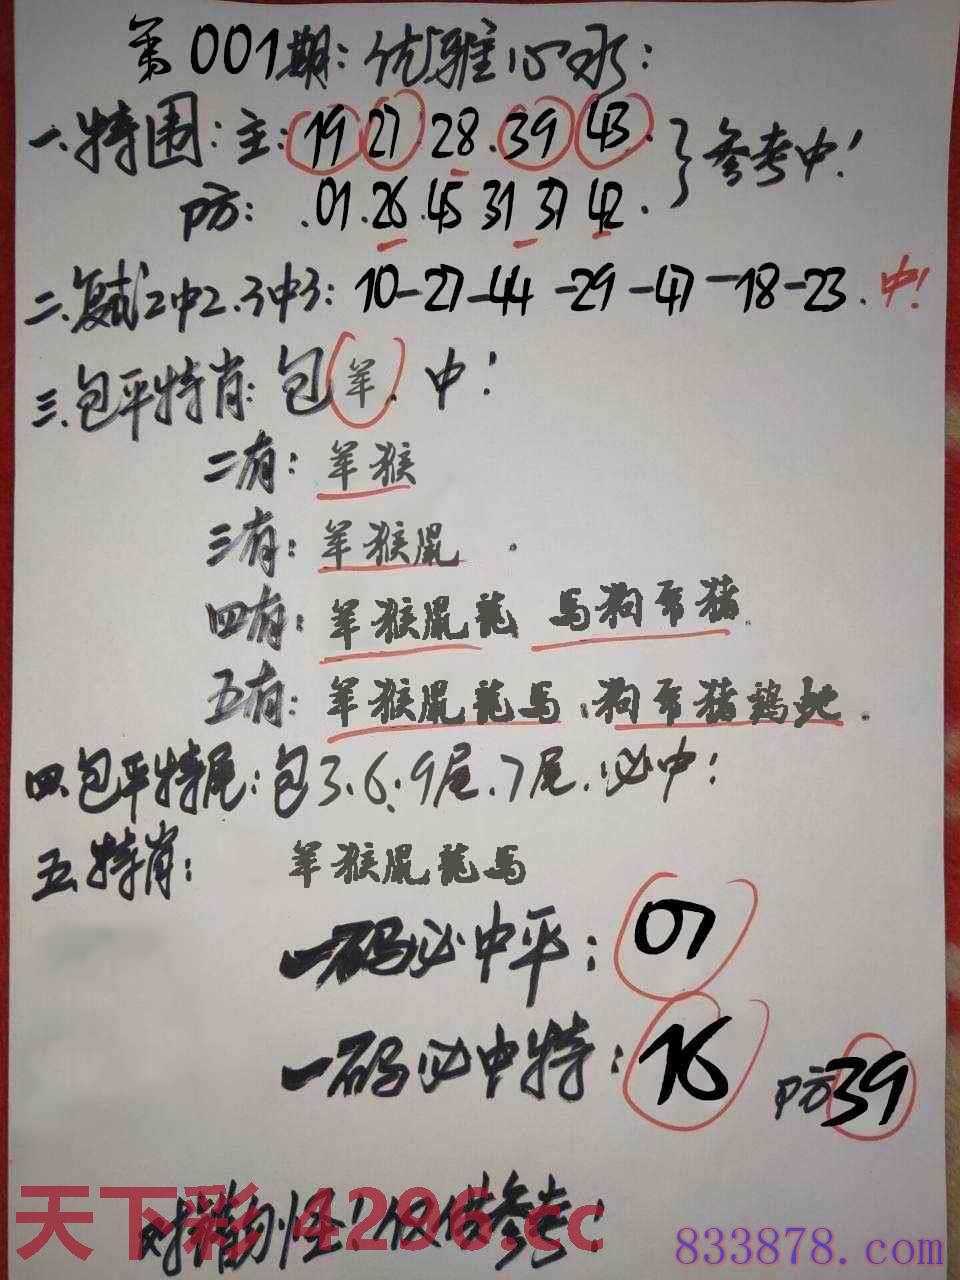 第001期:优雅心水:
一.特围:主:19 27 28.39 43. }参考中!
防: .01.26.45 31 37 42.
二.复试2中2.3中3: 10-27-44-29-47-18-23.中!
三.包平特肖:包羊.中!
二有:羊猴
三有:羊猴鼠.
四有:羊猴鼠龍 馬狗兔猪.
五有:羊猴鼠龍馬.狗兔猪鷄蛇.
四.包平特尾:包3.6.9尾.7尾.必中!
五.特肖: 羊猴鼠龍馬
一码必中平: 07
一码必中特: 16 防39
天下彩 4296.cc
勿怪!仅供参考!
833878.com